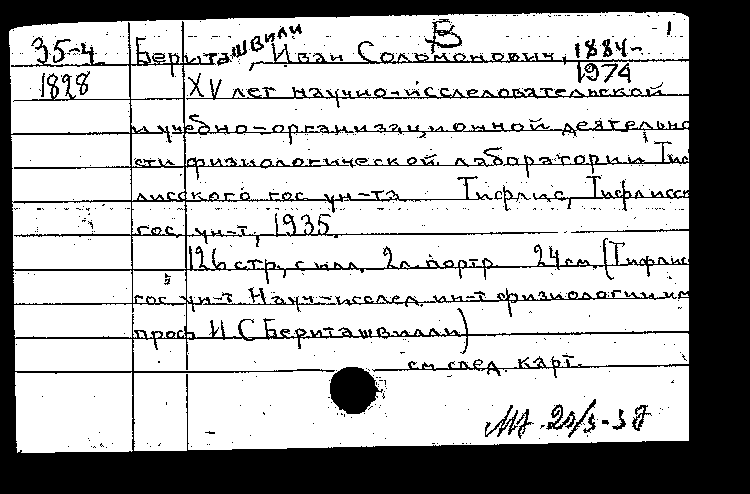 В 1
35-4 Бериташвили, Иван Соломонович, 1884-
1828 1974
XV лет научно-исследовательской
и учебно-организационной деятельно
сти физиологической лаборатории Тиф
лисского гос ун-та Тифлис, Тифлисск
гос ун-т, 1935.
126 стр, с илл. 2 л. портр 24 см. (Тифлис
гос ун-т. Науч-исслед ин-т физиологии им
проф И. С Бериташвилли)
см след. карт.